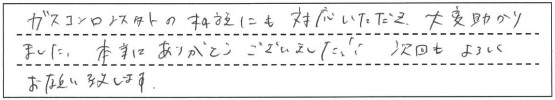 ガスコンロンスタトの相談にも対応いただき、大変助かり
ました。本当にありがとうございました!! 次回もよろしく
お願い致します。